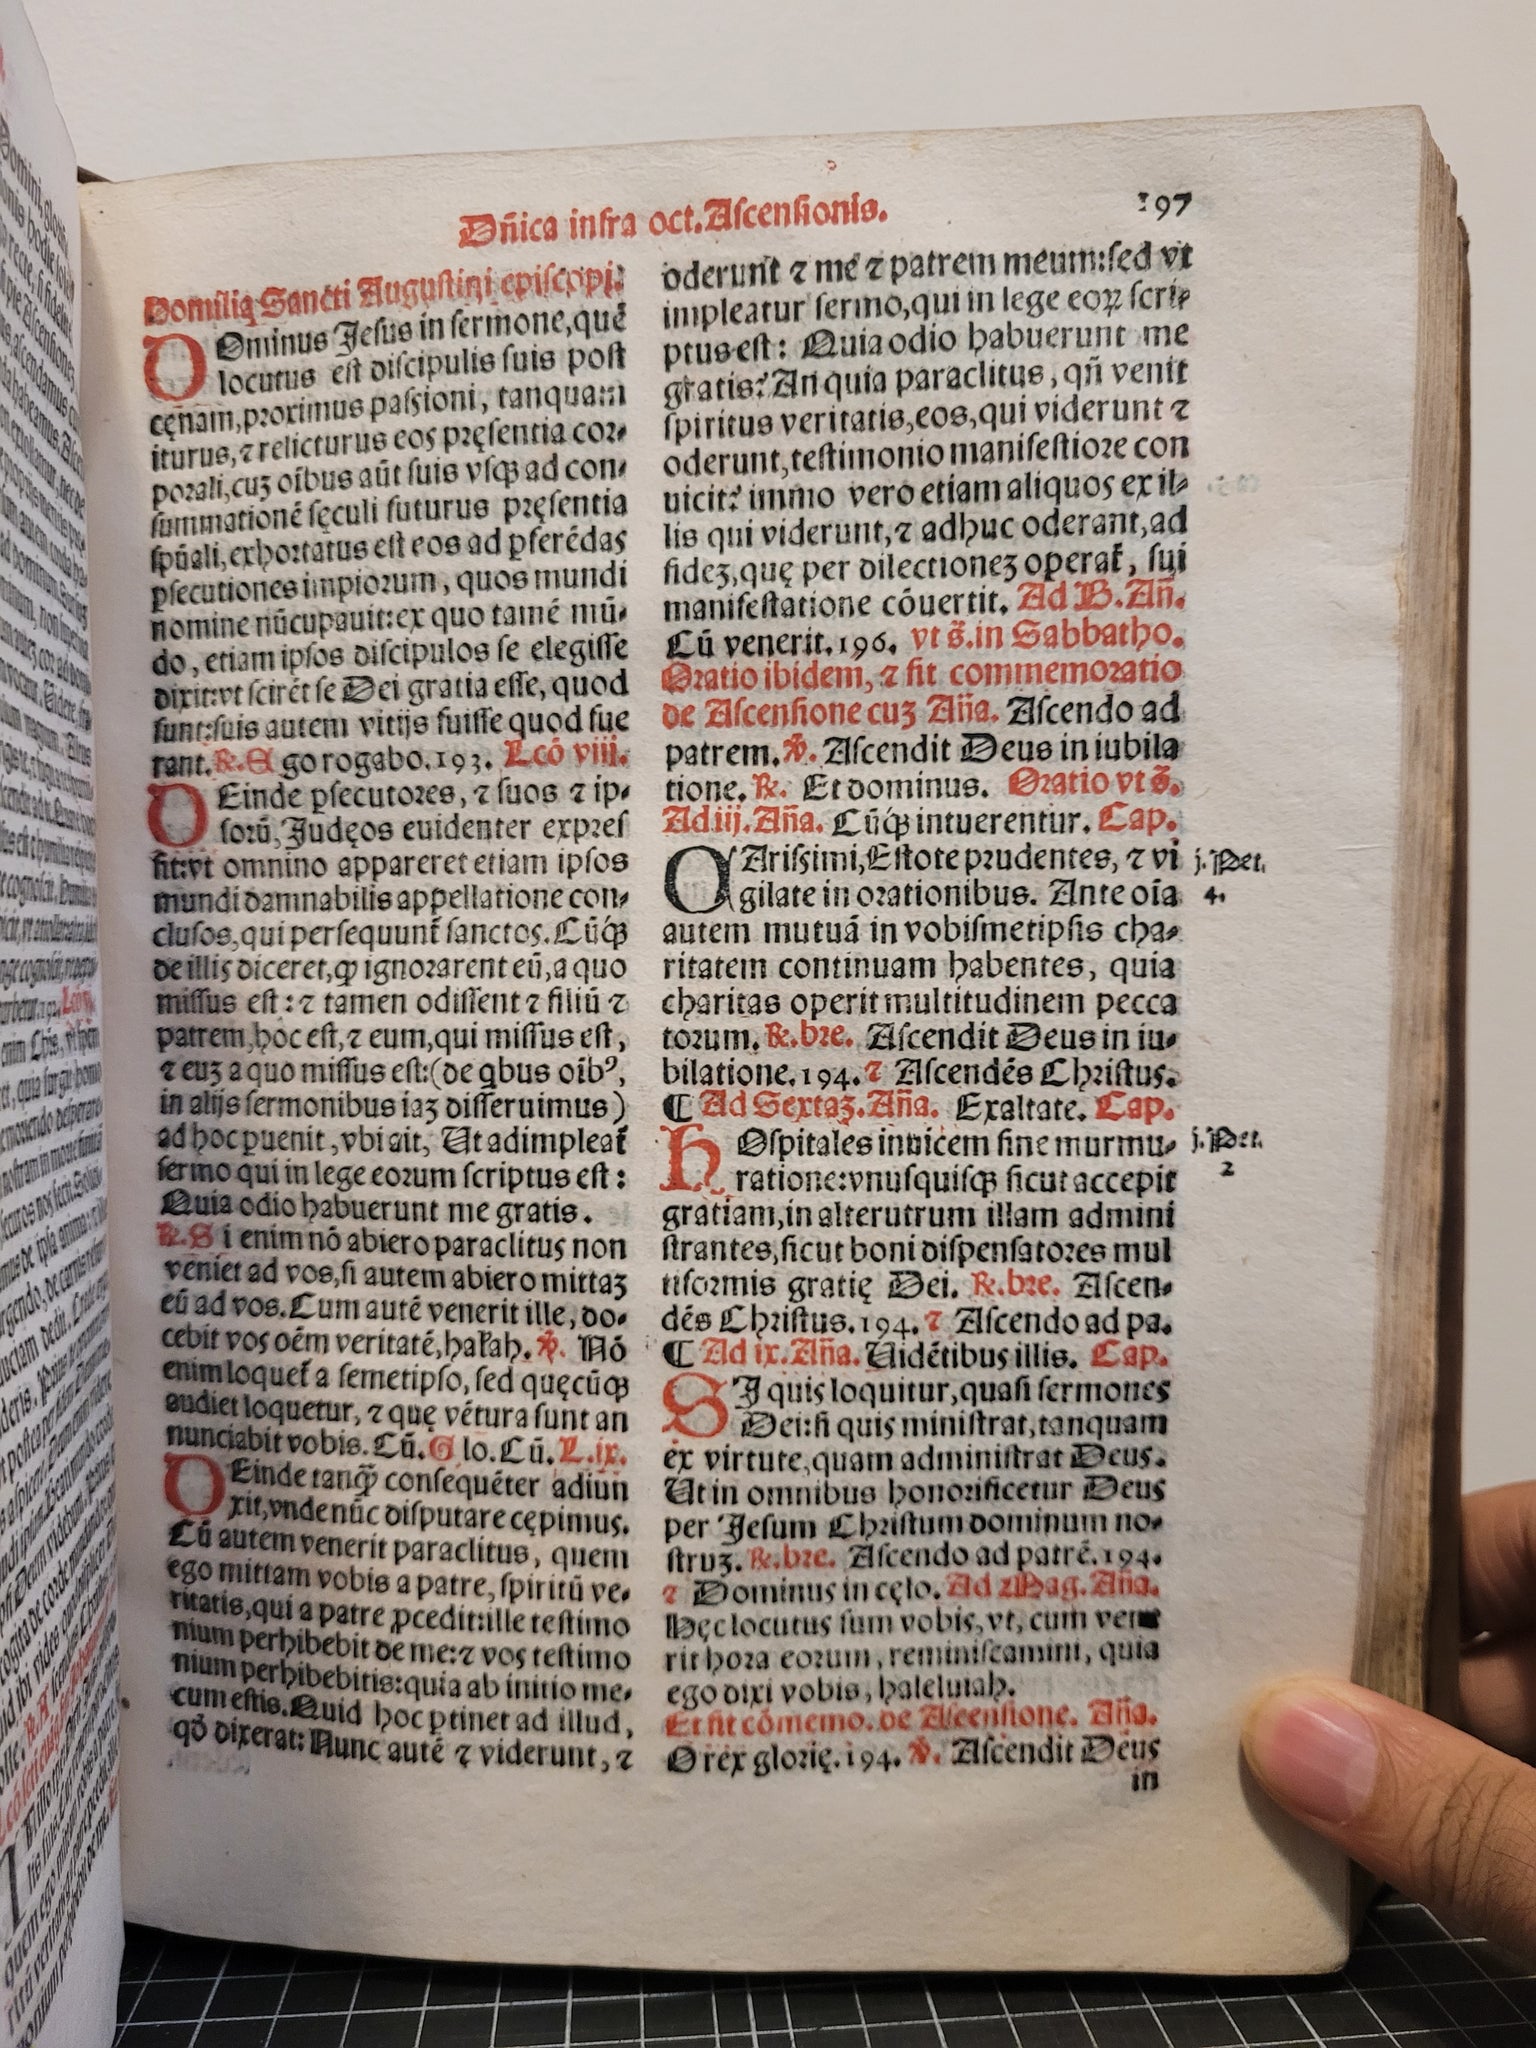 Dñica infra oct. Ascensionis.
197
Homilia Sancti Augustini episcopi.
DOminus Jesus in sermone, quē
locutus est discipulis suis post
cęnam, proximus passioni, tanquam
iturus, ⁊ relicturus eos pręsentia cor-
porali, cuʒ oībus aūt suis vsqꝫ ad con-
summationē sęculi futurus pręsentia
spūali, exhortatus est eos ad ꝑferēdas
ꝑsecutiones impiorum, quos mundi
nomine nūcupauit: ex quo tamē mū-
do, etiam ipsos discipulos se elegisse
dixit: vt scirēt se Dei gratia esse, quod
sunt: suis autem vitijs fuisse quod fue
rant. ℟. Ego rogabo. 193. Lcō viii.
DEinde ꝑsecutores, ⁊ suos ⁊ ip-
sorū, Judęos euidenter expres
sit: vt omnino appareret etiam ipsos
mundi damnabilis appellatione con-
clusos, qui persequunt̄ sanctos. Cūqꝫ
de illis diceret, ꝙ ignorarent eū, a quo
missus est: ⁊ tamen odissent ⁊ filiū ⁊
patrem, hoc est, ⁊ eum, qui missus est,
⁊ euʒ a quo missus est: (de qbus oībꝰ,
in alijs sermonibus iaʒ disseruimus)
ad hoc ꝑuenit, vbi ait, Ut adimpleat̄
sermo qui in lege eorum scriptus est:
Quia odio habuerunt me gratis.
℟. Si enim nō abiero paraclitus non
veniet ad vos, si autem abiero mittaʒ
eū ad vos. Cum autē venerit ille, do-
cebit vos oēm veritatē, hal'ah. ℣. Nō
enim loquet̄ a semetipso, sed quęcūqꝫ
audiet loquetur, ⁊ quę vētura sunt an
nunciabit vobis. Cū. Glo. Cū. L. ix.
DEinde tanqꝫ̄ consequēter adiun
xit, vnde nūc disputare cępimus.
Cū autem venerit paraclitus, quem
ego mittam vobis a patre, spiritū ve-
ritatis, qui a patre ꝓcedit: ille testimo
nium perhibebit de me: ⁊ vos testimo
nium perhibebitis: quia ab initio me-
cum estis. Quid hoc ꝑtinet ad illud,
qð dixerat: Nunc autē ⁊ viderunt, ⁊
oderunt ⁊ me ⁊ patrem meum: sed vt
impleatur sermo, qui in lege eoꝝ scri-
ptus est: Quia odio habuerunt me
gratis? An quia paraclitus, qñ venit
spiritus veritatis, eos, qui viderunt ⁊
oderunt, testimonio manifestiore con
uicit? immo vero etiam aliquos ex il-
lis qui viderunt, ⁊ adhuc oderant, ad
fideʒ, quę per dilectioneʒ operat̄, sui
manifestatione cōuertit. Ad B. Añ.
Cū venerit. 196. vt s̄. in Sabbatho.
Oratio ibidem, ⁊ fit commemoratio
de Ascensione cuʒ Aña. Ascendo ad
patrem. ℣. Ascendit Deus in iubila
tione. ℟. Et dominus. Oratio vt s̄.
Ad iij. Aña. Cūqꝫ intuerentur. Cap.
CArissimi, Estote prudentes, ⁊ vi
gilate in orationibus. Ante oīa
autem mutuā in vobismetipsis cha-
ritatem continuam habentes, quia
charitas operit multitudinem pecca
torum. ℟. bre. Ascendit Deus in iu-
bilatione. 194. ⁊ Ascendēs Christus.
¶ Ad Sextaʒ. Aña. Exaltate. Cap.
HOspitales inuicem sine murmu-
ratione: vnusquisqꝫ sicut accepit
gratiam, in alterutrum illam admini
strantes, sicut boni dispensatores mul
tiformis gratię Dei. ℟. bre. Ascen-
dēs Christus. 194. ⁊ Ascendo ad pa.
¶ Ad ix. Aña. Uidētibus illis. Cap.
SI quis loquitur, quasi sermones
Dei: si quis ministrat, tanquam
ex virtute, quam administrat Deus.
Ut in omnibus honorificetur Deus
per Jesum Christum dominum no-
struʒ. ℟. bre. Ascendo ad patrē. 194.
⁊ Dominus in cęlo. Ad Mag. Aña.
Hęc locutus sum vobis, vt, cum vene
rit hora eorum, reminiscamini, quia
ego dixi vobis, haleluiah.
Et fit cōmemo. de Ascensione. Aña.
O rex glorię. 194. ℣. Ascendit Deus
in
j. Pet.
4.
j. Pet.
2